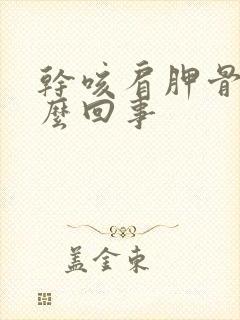 幹咳肩胛骨
麼回事
盖金東